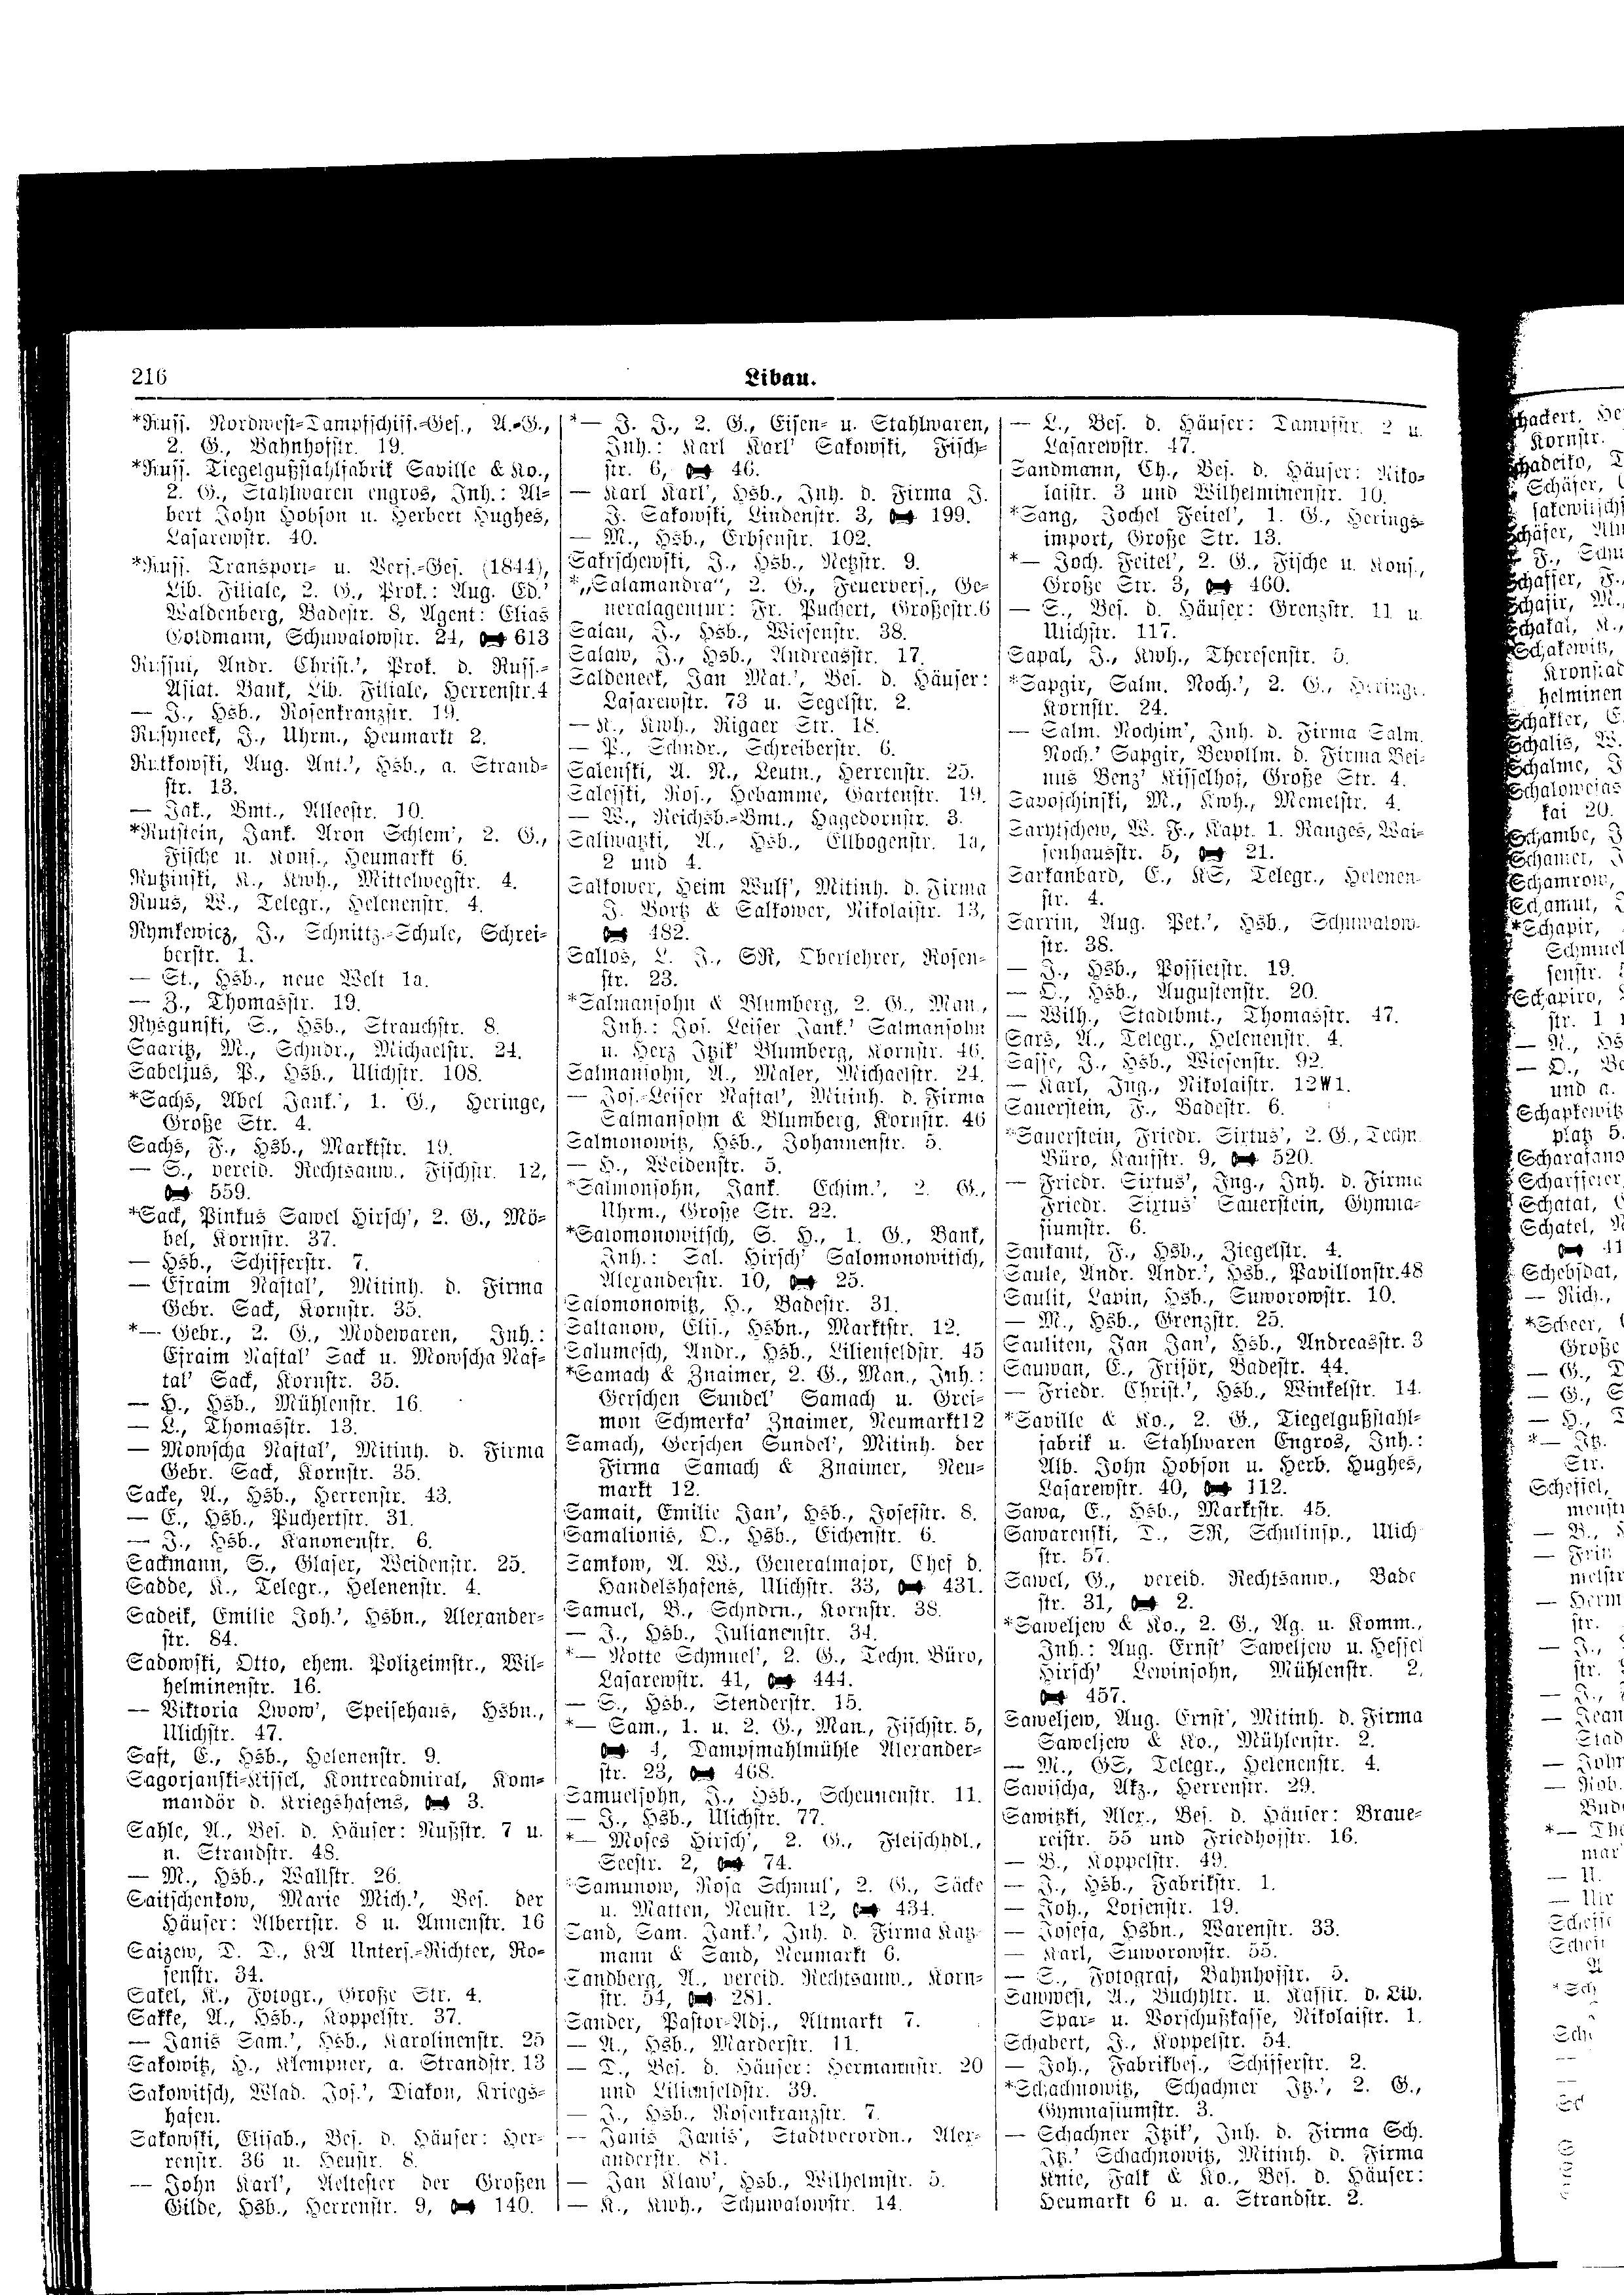 216
Libau.
*Russ. Nordwest-Dampfschiff.-Ges., A.-G.,
2. G., Bahnhofstr. 19.
*Russ. Tiegelgußstahlfabrik Saville & Ko.,
2. G., Stahlwaren engros, Inh.: Al-
bert John Hobson u. Herbert Hughes,
Lasarewstr. 40.
*Russ. Transport- u. Vers.-Ges. (1844),
Lib. Filiale, 2. G., Prok.: Aug. Ed.'
Waldenberg, Badestr. 8, Agent: Elias
Goldmann, Schuwalowstr. 24, 613
Russui, Andr. Christ.', Prok. d. Russ.-
Asiat. Bank, Lib. Filiale, Herrenstr.4
— J., Hsb., Rosenkranzstr. 19.
Rusyneck, J., Uhrm., Heumarkt 2.
Rutkowski, Aug. Ant.', Hsb., a. Strand-
str. 13.
— Jak., Bmt., Alleestr. 10.
*Rutstein, Jank. Aron Schlem', 2. G.,
Fische u. Kons., Heumarkt 6.
Rutzinski, K., Kwh., Mittelwegstr. 4.
Ruus, W., Telegr., Helenenstr. 4.
Rymkewicz, J., Schnittz.-Schule, Schrei-
berstr. 1.
— St., Hsb., neue Welt 1a.
— Z., Thomasstr. 19.
Rysgunski, S., Hsb., Strauchstr. 8.
Saaritz, M., Schndr., Michaelstr. 24.
Sabeljus, P., Hsb., Ulichstr. 108.
*Sachs, Abel Jank.', 1. G., Heringe,
Große Str. 4.
Sachs, F., Hsb., Marktstr. 19.
— S., vereid. Rechtsanw., Fischstr. 12,
559.
*Sack, Pinkus Sawel Hirsch', 2. G., Mö-
bel, Kornstr. 37.
— Hsb., Schifferstr. 7.
— Efraim Naftal', Mitinh. d. Firma
Gebr. Sack, Kornstr. 35.
*— Gebr., 2. G., Modewaren, Inh.:
Efraim Naftal' Sack u. Mowscha Naf-
tal' Sack, Kornstr. 35.
— H., Hsb., Mühlenstr. 16.
— L., Thomasstr. 13.
— Mowscha Naftal', Mitinh. d. Firma
Gebr. Sack, Kornstr. 35.
Sacke, A., Hsb., Herrenstr. 43.
— E., Hsb., Puchertstr. 31.
— J., Hsb., Kanonenstr. 6.
Sackmann, S., Glaser, Weidenstr. 25.
Sadde, K., Telegr., Helenenstr. 4.
Sadeik, Emilie Joh.', Hsbn., Alexander-
str. 84.
Sadowski, Otto, ehem. Polizeimstr., Wil-
helminenstr. 16.
— Viktoria Lwow', Speisehaus, Hsbn.,
Ulichstr. 47.
Saft, E., Hsb., Helenenstr. 9.
Sagorjanski-Kissel, Kontreadmiral, Kom-
mandör d. Kriegshafens, 3.
Sahle, A., Bes. d. Häuser: Nußstr. 7 u.
n. Strandstr. 48.
— M., Hsb., Wallstr. 26.
Saitschenkow, Marie Mich.', Bes. der
Häuser: Albertstr. 8 u. Annenstr. 16
Saizew, D. D., KA Unters.-Richter, Ro-
senstr. 34.
Sakel, K., Fotogr., Große Str. 4.
Sakke, A., Hsb., Koppelstr. 37.
— Janis Sam.', Hsb., Karolinenstr. 25
Sakowitz, H., Klempner, a. Strandstr. 13
Sakowitsch, Wlad. Jos.', Diakon, Kriegs-
hafen.
Sakowski, Elisab., Bes. d. Häuser: Her-
renstr. 36 u. Heustr. 8.
— John Karl', Aeltester der Großen
Gilde, Hsb., Herrenstr. 9, 140.
*— J. J., 2. G., Eisen- u. Stahlwaren,
Inh.: Karl Karl' Sakowski, Fisch-
str. 6, 46.
— Karl Karl', Hsb., Inh. d. Firma J.
J. Sakowski, Lindenstr. 3, 199.
— M., Hsb., Erbsenstr. 102.
Sakrschewski, J., Hsb., Netzstr. 9.
*„Salamandra“, 2. G., Feuervers., Ge-
neralagentur: Fr. Puchert, Großestr.6
Salau, J., Hsb., Wiesenstr. 38.
Salaw, J., Hsb., Andreasstr. 17.
Saldeneck, Jan Mat.', Bes. d. Häuser:
Lasarewstr. 73 u. Segelstr. 2.
— K., Kwh., Rigaer Str. 18.
— P., Schndr., Schreiberstr. 6.
Salenski, A. N., Leutn., Herrenstr. 25.
Salesski, Ros., Hebamme, Gartenstr. 19.
— W., Reichsb.-Bmt., Hagedornstr. 3.
Saliwatzki, A., Hsb., Ellbogenstr. 1a,
2 und 4.
Salkower, Heim Wulf', Mitinh. d. Firma
J. Bortz & Salkower, Nikolaistr. 13,
482.
Sallos, L. J., SR, Oberlehrer, Rosen-
str. 23.
*Salmansohn & Blumberg, 2. G., Man.,
Inh.: Jos. Leiser Jank.' Salmansohn
u. Herz Itzik' Blumberg, Kornstr. 46.
Salmansohn, A., Maler, Michaelstr. 24.
— Jos.-Leiser Naftal', Mitinh. d. Firma
Salmansohn & Blumberg, Kornstr. 46
Salmonowitz, Hsb., Johannenstr. 5.
— H., Weidenstr. 5.
*Salmonsohn, Jank. Echim.', 2. G.,
Uhrm., Große Str. 22.
*Salomonowitsch, S. H., 1. G., Bank,
Inh.: Sal. Hirsch' Salomonowitsch,
Alexanderstr. 10, 25.
Salomonowitz, H., Badestr. 31.
Saltanow, Elis., Hsbn., Marktstr. 12.
Salumesch, Andr., Hsb., Lilienfeldstr. 45
*Samach & Znaimer, 2. G., Man., Inh.:
Gerschen Sundel' Samach u. Grei-
mon Schmerka' Znaimer, Neumarkt12
Samach, Gerschen Sundel', Mitinh. der
Firma Samach & Znaimer, Neu-
markt 12.
Samait, Emilie Jan', Hsb., Josefstr. 8.
Samalionis, O., Hsb., Eichenstr. 6.
Samkow, A. W., Generalmajor, Chef d.
Handelshafens, Ulichstr. 33, 431.
Samuel, B., Schndrn., Kornstr. 38.
— J., Hsb., Julianenstr. 34.
*— Notte Schmuel', 2. G., Techn. Büro,
Lasarewstr. 41, 444.
— S., Hsb., Stenderstr. 15.
*— Sam., 1. u. 2. G., Man., Fischstr. 5,
4, Dampfmahlmühle Alexander-
str. 23, 468.
Samuelsohn, J., Hsb., Scheunenstr. 11.
— J., Hsb., Ulichstr. 77.
*— Moses Hirsch', 2. G., Fleischhdl.,
Seestr. 2, 74.
*Samunow, Rosa Schmul', 2. G., Säcke
u. Matten, Neustr. 12, 434.
Sand, Sam. Jank.', Inh. d. Firma Katz-
mann & Sand, Neumarkt 6.
Sandberg, A., vereid. Rechtsanw., Korn-
str. 54, 281.
Sander, Pastor-Adj., Altmarkt 7.
— A., Hsb., Marderstr. 11.
— D., Bes. d. Häuser: Hermannstr. 20
und Lilienfeldstr. 39.
— J., Hsb., Rosenkranzstr. 7.
— Janis Janis', Stadtverordn., Alex-
anderstr. 81.
— Jan Klaw', Hsb., Wilhelmstr. 5.
— K., Kwh., Schuwalowstr. 14.
— L., Bes. d. Häuser: Dampfstr. 2 u.
Lasarewstr. 47.
Sandmann, Ch., Bes. d. Häuser: Niko-
laistr. 3 und Wilhelminenstr. 10.
*Sang, Jochel Feitel', 1. G., Herings-
import, Große Str. 13.
*— Joch. Feitel', 2. G., Fische u. Kons.,
Große Str. 3, 460.
— S., Bes. d. Häuser: Grenzstr. 11 u.
Ulichstr. 117.
Sapal, J., Kwh., Theresenstr. 5.
*Sapgir, Salm. Noch.', 2. G., Heringe,
Kornstr. 24.
— Salm. Nochim', Inh. d. Firma Salm.
Noch.' Sapgir, Bevollm. d. Firma Bei-
nus Benz' Kisselhof, Große Str. 4.
Saposchinski, M., Kwh., Memelstr. 4.
Sarytschew, W. F., Kapt. 1. Ranges, Wai-
senhausstr. 5, 21.
Sarkanbard, E., KS, Telegr., Helenen-
str. 4.
Sarrin, Aug. Pet.', Hsb., Schuwalow-
str. 38.
— J., Hsb., Possietstr. 19.
— O., Hsb., Augustenstr. 20.
— Wilh., Stadtbmt., Thomasstr. 47.
Sars, A., Telegr., Helenenstr. 4.
Sasse, J., Hsb., Wiesenstr. 92.
— Karl, Ing., Nikolaistr. 12W1.
Sauerstein, F., Badestr. 6.
*Sauerstein, Friedr. Sixtus', 2. G., Techn.
Büro, Kaufstr. 9, 520.
— Friedr. Sixtus', Ing., Inh. d. Firma
Friedr. Sixtus' Sauerstein, Gymna-
siumstr. 6.
Saukant, F., Hsb., Ziegelstr. 4.
Saule, Andr. Andr.', Hsb., Pavillonstr.48
Saulit, Lavin, Hsb., Suworowstr. 10.
— M., Hsb., Grenzstr. 25.
Sauliten, Jan Jan', Hsb., Andreasstr. 3
Sauwan, E., Frisör, Badestr. 44.
— Friedr. Christ.', Hsb., Winkelstr. 14.
*Saville & Ko., 2. G., Tiegelgußstahl-
fabrik u. Stahlwaren Engros, Inh.:
Alb. John Hobson u. Herb. Hughes,
Lasarewstr. 40, 112.
Sawa, E., Hsb., Marktstr. 45.
Sawarenski, D., SR, Schulinsp., Ulich-
str. 57.
Sawel, G., vereid. Rechtsanw., Bade
str. 31, 2.
*Saweljew & Ko., 2. G., Ag. u. Komm.,
Inh.: Aug. Ernst' Saweljew u. Hessel
Hirsch' Lewinsohn, Mühlenstr. 2,
457.
Saweljew, Aug. Ernst', Mitinh. d. Firma
Saweljew & Ko., Mühlenstr. 2.
— M., GS, Telegr., Helenenstr. 4.
Sawischa, Akz., Herrenstr. 29.
Sawitzki, Alex., Bes. d. Häuser: Braue-
reistr. 55 und Friedhofstr. 16.
— B., Koppelstr. 49.
— J., Hsb., Fabrikstr. 1.
— Joh., Lotsenstr. 19.
— Josefa, Hsbn., Warenstr. 33.
— Karl, Suworowstr. 55.
— S., Fotograf, Bahnhofstr. 5.
Sawwest, A., Buchhltr. u. Kassir. d. Lib.
Spar- u. Vorschußkasse, Nikolaistr. 1.
Schabert, J., Koppelstr. 54.
— Joh., Fabrikbes., Schifferstr. 2.
*Schachnowitz, Schachner Itz.', 2. G.,
Gymnasiumstr. 3.
— Schachner Itzik', Inh. d. Firma Sch.
Itz.' Schachnowitz, Mitinh. d. Firma
Knie, Falk & Ko., Bes. d. Häuser:
Heumarkt 6 u. a. Strandstr. 2.